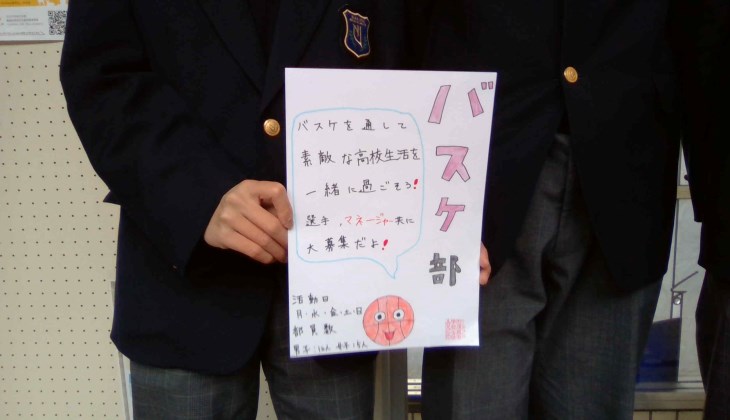 バスケ部
バスケを通して
素敵な高校生活を
一緒に過ごそう!
選手、マネージャー共に
大募集だよ!
活動日
月・水・金・土・日
部員数